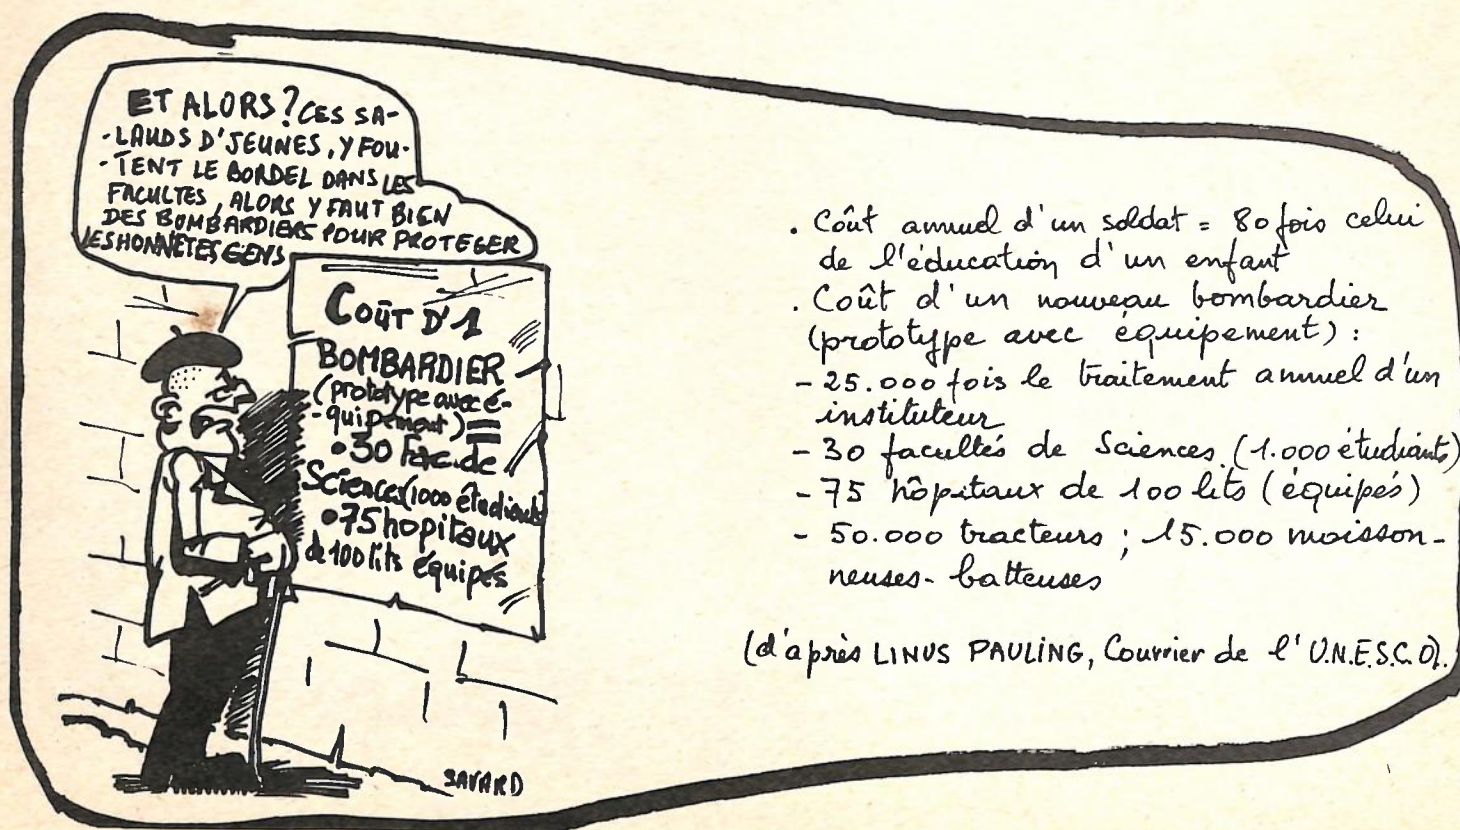 ET ALORS? CES SA-
-LAUDS D'JEUNES, Y FOU-
-TENT LE BORDEL DANS LES
FACULTES, ALORS Y FAUT BIEN
DES BOMBARDIERS POUR PROTEGER
LES HONNETES GENS
COÛT D'1
BOMBARDIER
(prototype avec é-
-quipement) =
• 30 Fac. de
Sciences (1000 étudiants)
• 75 hopitaux
de 100 lits équipés
SAVARD
. Coût annuel d'un soldat = 80 fois celui
de l'éducation d'un enfant
. Coût d'un nouveau bombardier
(prototype avec équipement) :
- 25.000 fois le traitement annuel d'un
instituteur
- 30 facultés de Sciences (1.000 étudiants)
- 75 hôpitaux de 100 lits (équipés)
- 50.000 tracteurs ; 15.000 moisson-
neuses-batteuses
(d'après LINUS PAULING, Courrier de l'U.N.E.S.C.O).